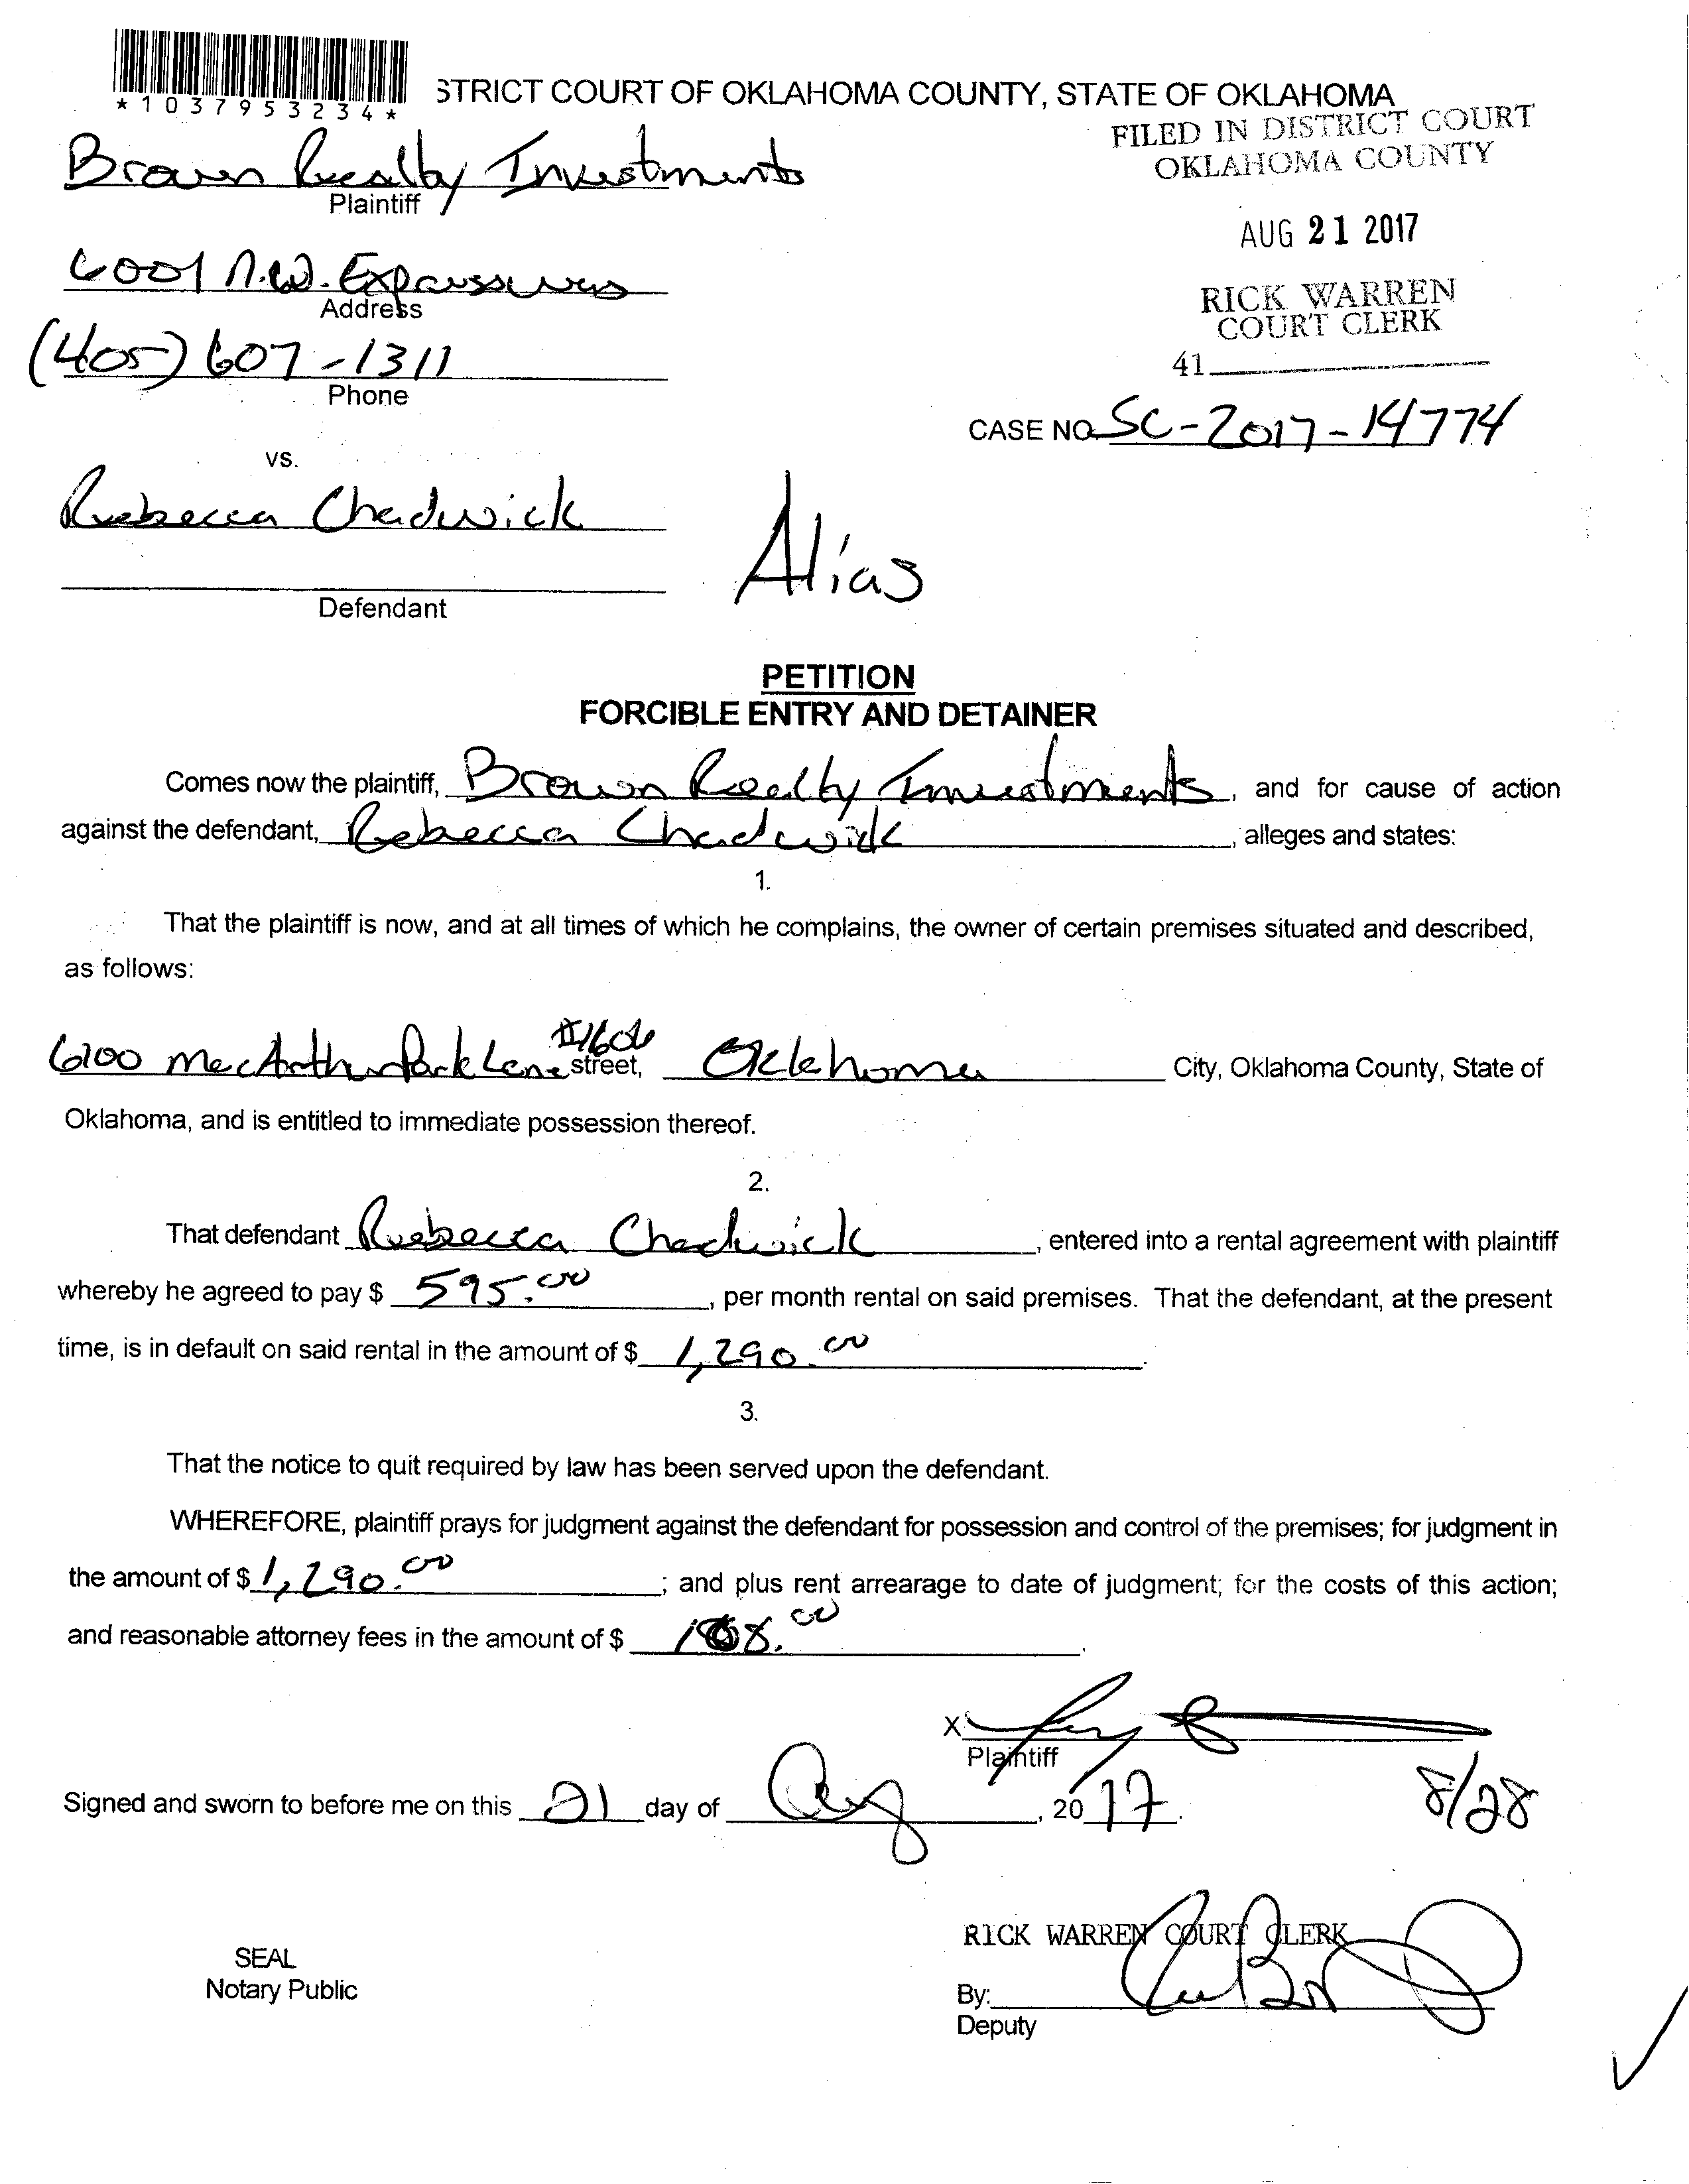 *1037953234*
STRICT COURT OF OKLAHOMA COUNTY, STATE OF OKLAHOMA
FILED IN DISTRICT COURT
OKLAHOMA COUNTY
Brown Realty Investments
Plaintiff
AUG 21 2017
6001 N.W. Expressway
Address
RICK WARREN
COURT CLERK
(405) 607-1311
Phone
41
CASE NO. SC-2017-14774
vs.
Rebecca Chadwick
Alias
Defendant
PETITION
FORCIBLE ENTRY AND DETAINER
Comes now the plaintiff, Brown Realty Investments, and for cause of action
against the defendant, Rebecca Chadwick, alleges and states:
1.
That the plaintiff is now, and at all times of which he complains, the owner of certain premises situated and described,
as follows:
6200 MacArthur Park Lane #1606 street, Oklahoma City, Oklahoma County, State of
Oklahoma, and is entitled to immediate possession thereof.
2.
That defendant Rebecca Chadwick, entered into a rental agreement with plaintiff
whereby he agreed to pay $ 595.00, per month rental on said premises. That the defendant, at the present
time, is in default on said rental in the amount of $ 1,290.00.
3.
That the notice to quit required by law has been served upon the defendant.
WHEREFORE, plaintiff prays for judgment against the defendant for possession and control of the premises; for judgment in
the amount of $ 1,290.00; and plus rent arrearage to date of judgment; for the costs of this action;
and reasonable attorney fees in the amount of $
X
Plaintiff
Signed and sworn to before me on this 21 day of Aug, 2017.
8/28
RICK WARREN COURT CLERK
SEAL
Notary Public
By:
Deputy